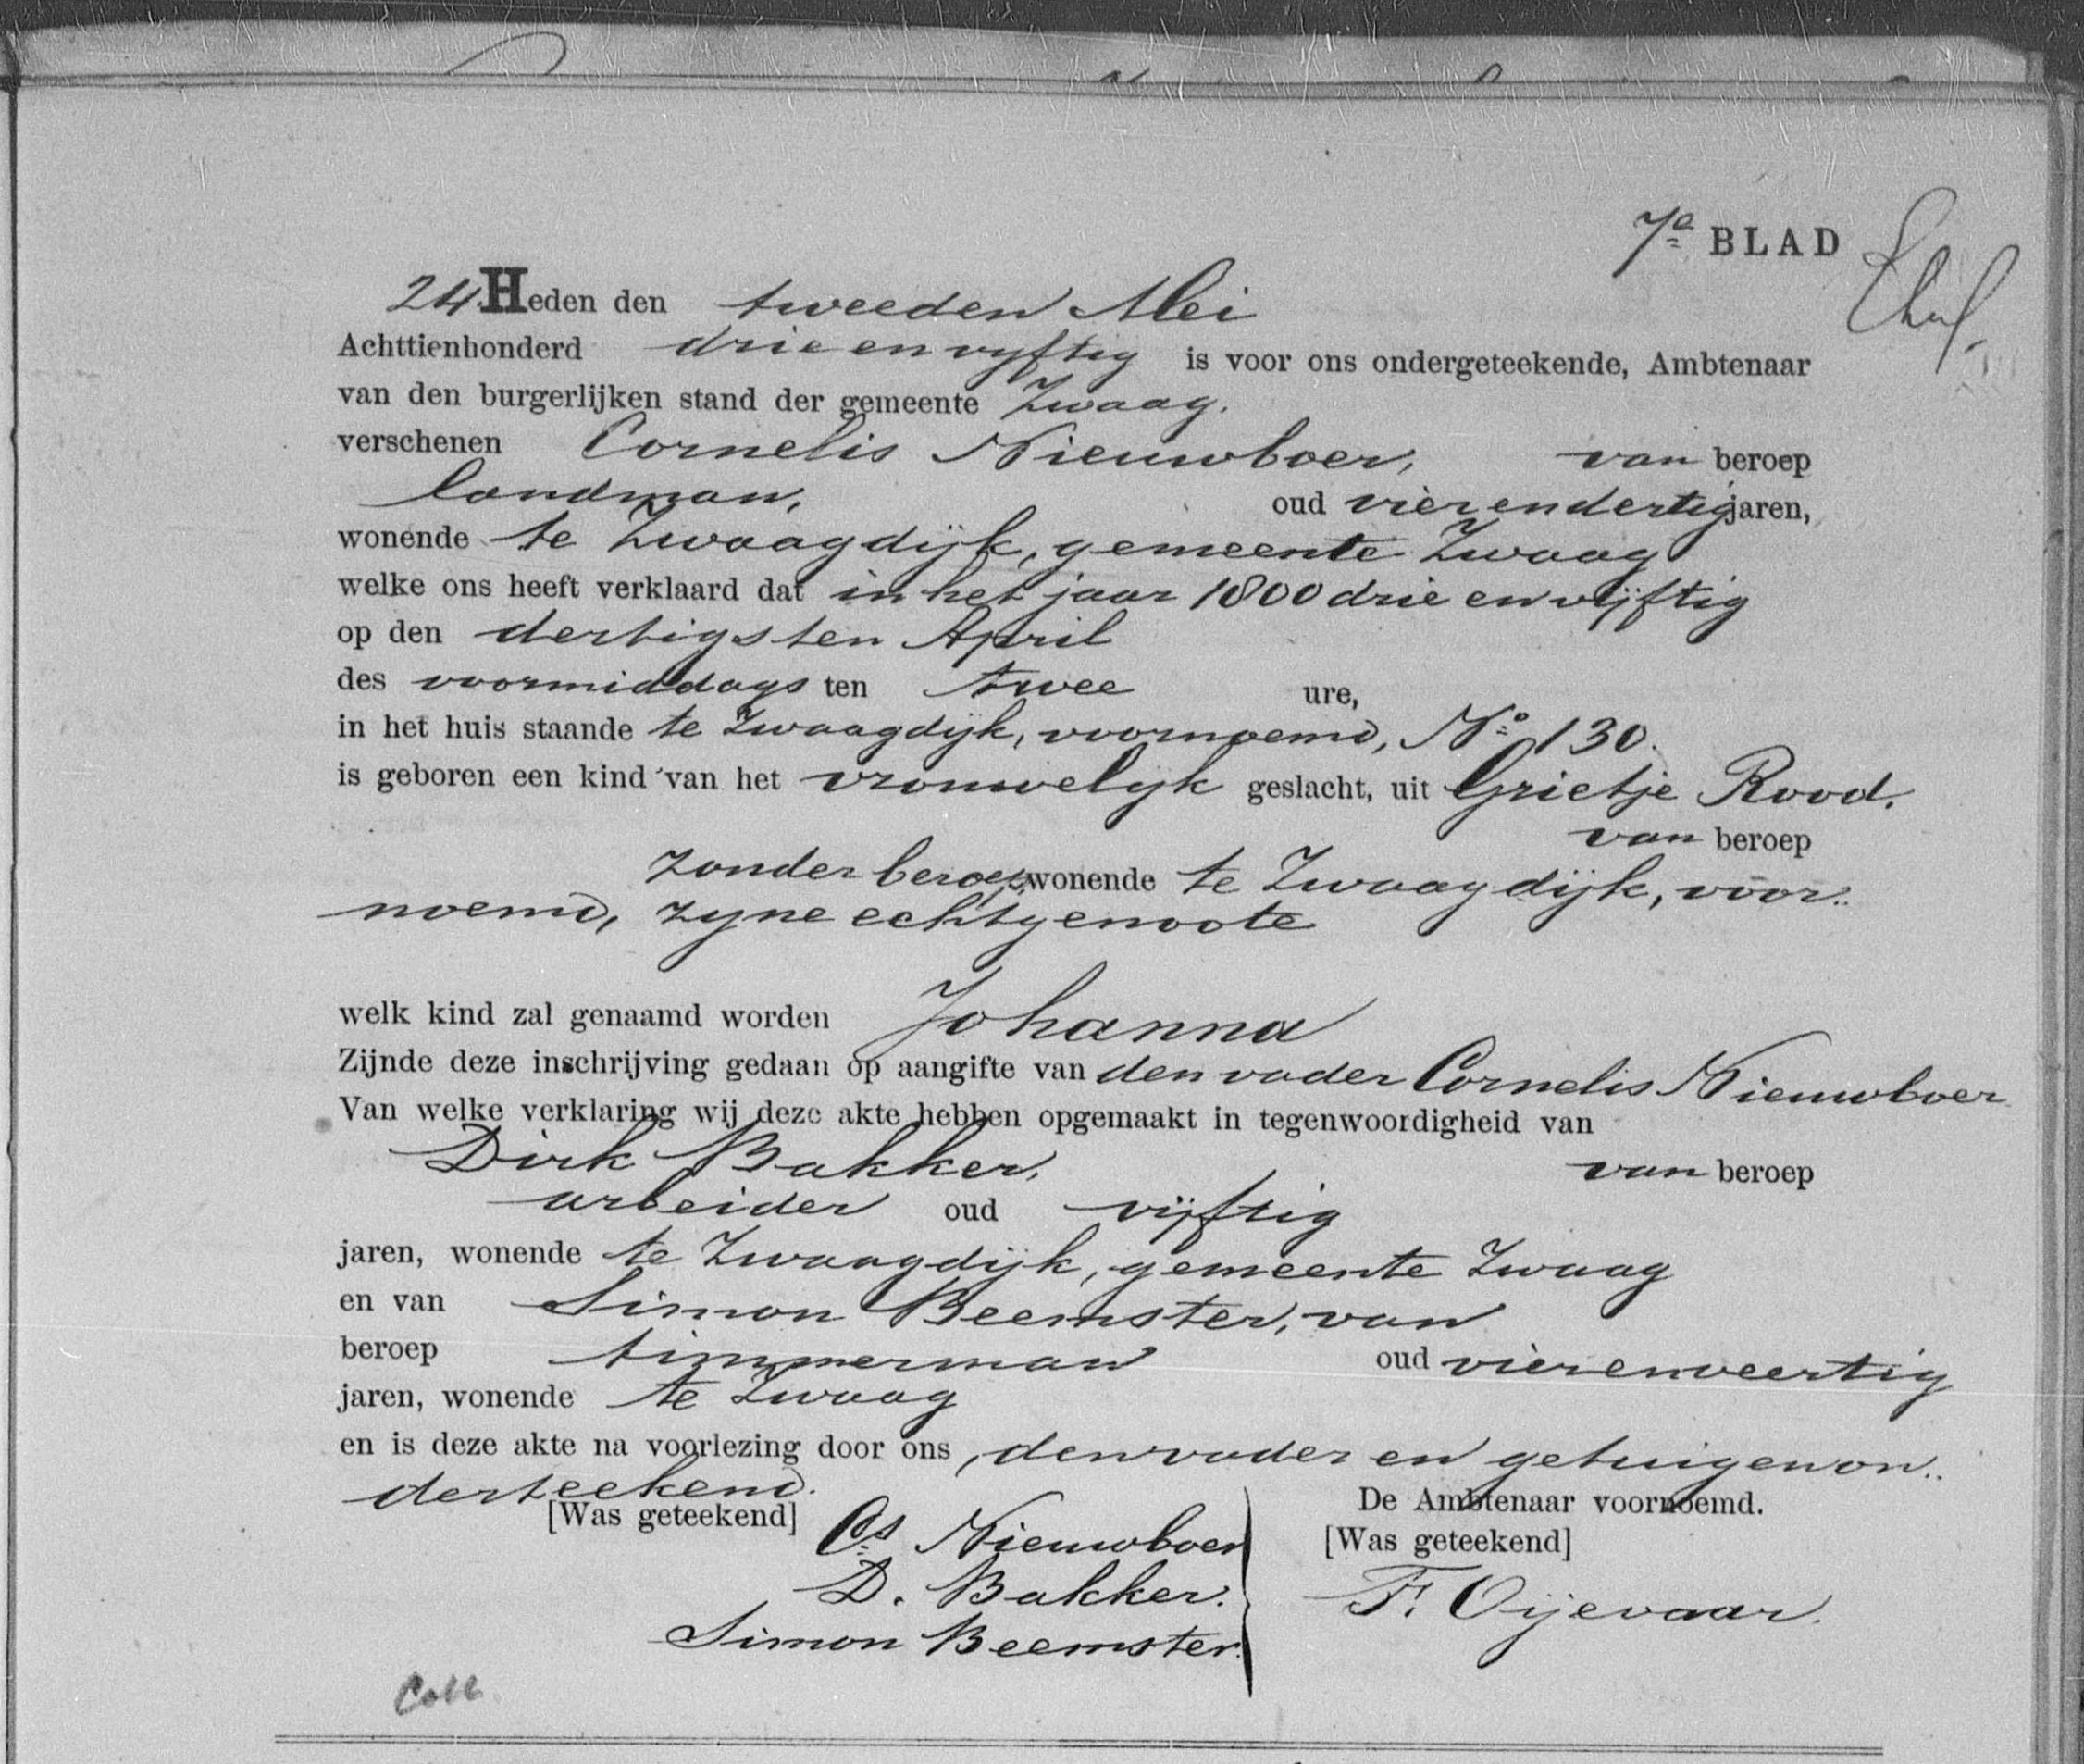 7e BLAD
24 Heden den tweeden Mei
Achttienhonderd drie en vyftig is voor ons ondergeteekende, Ambtenaar
van den burgerlijken stand der gemeente Zwaag.
verschenen Cornelis Nieuwboer, van beroep
landman, oud vierendertig jaren,
wonende te Zwaagdijk, gemeente Zwaag
welke ons heeft verklaard dat in het jaar 1800 drie en vijftig
op den dertigsten April
des voormiddags ten twee ure,
in het huis staande te Zwaagdijk, voornoemd, No 130.
is geboren een kind van het vrouwelyk geslacht, uit Grietje Rood.
van beroep
zonder beroep, wonende te Zwaagdijk, voor..
noemd, zyne echtgenoote
welk kind zal genaamd worden Johanna
Zijnde deze inschrijving gedaan op aangifte van den vader Cornelis Nieuwboer
Van welke verklaring wij deze akte hebben opgemaakt in tegenwoordigheid van
Dirk Bakker, van beroep
arbeider oud vijftig
jaren, wonende te Zwaagdijk, gemeente Zwaag
en van Simon Beemster, van
beroep timmerman oud vierenveertig
jaren, wonende te Zwaag
en is deze akte na voorlezing door ons, den vader en getuigen on..
derteekend.
[Was geteekend]
Cs Nieuwboer
D. Bakker.
Simon Beemster.
De Ambtenaar voornoemd.
[Was geteekend]
F. Oijevaar.
Coll